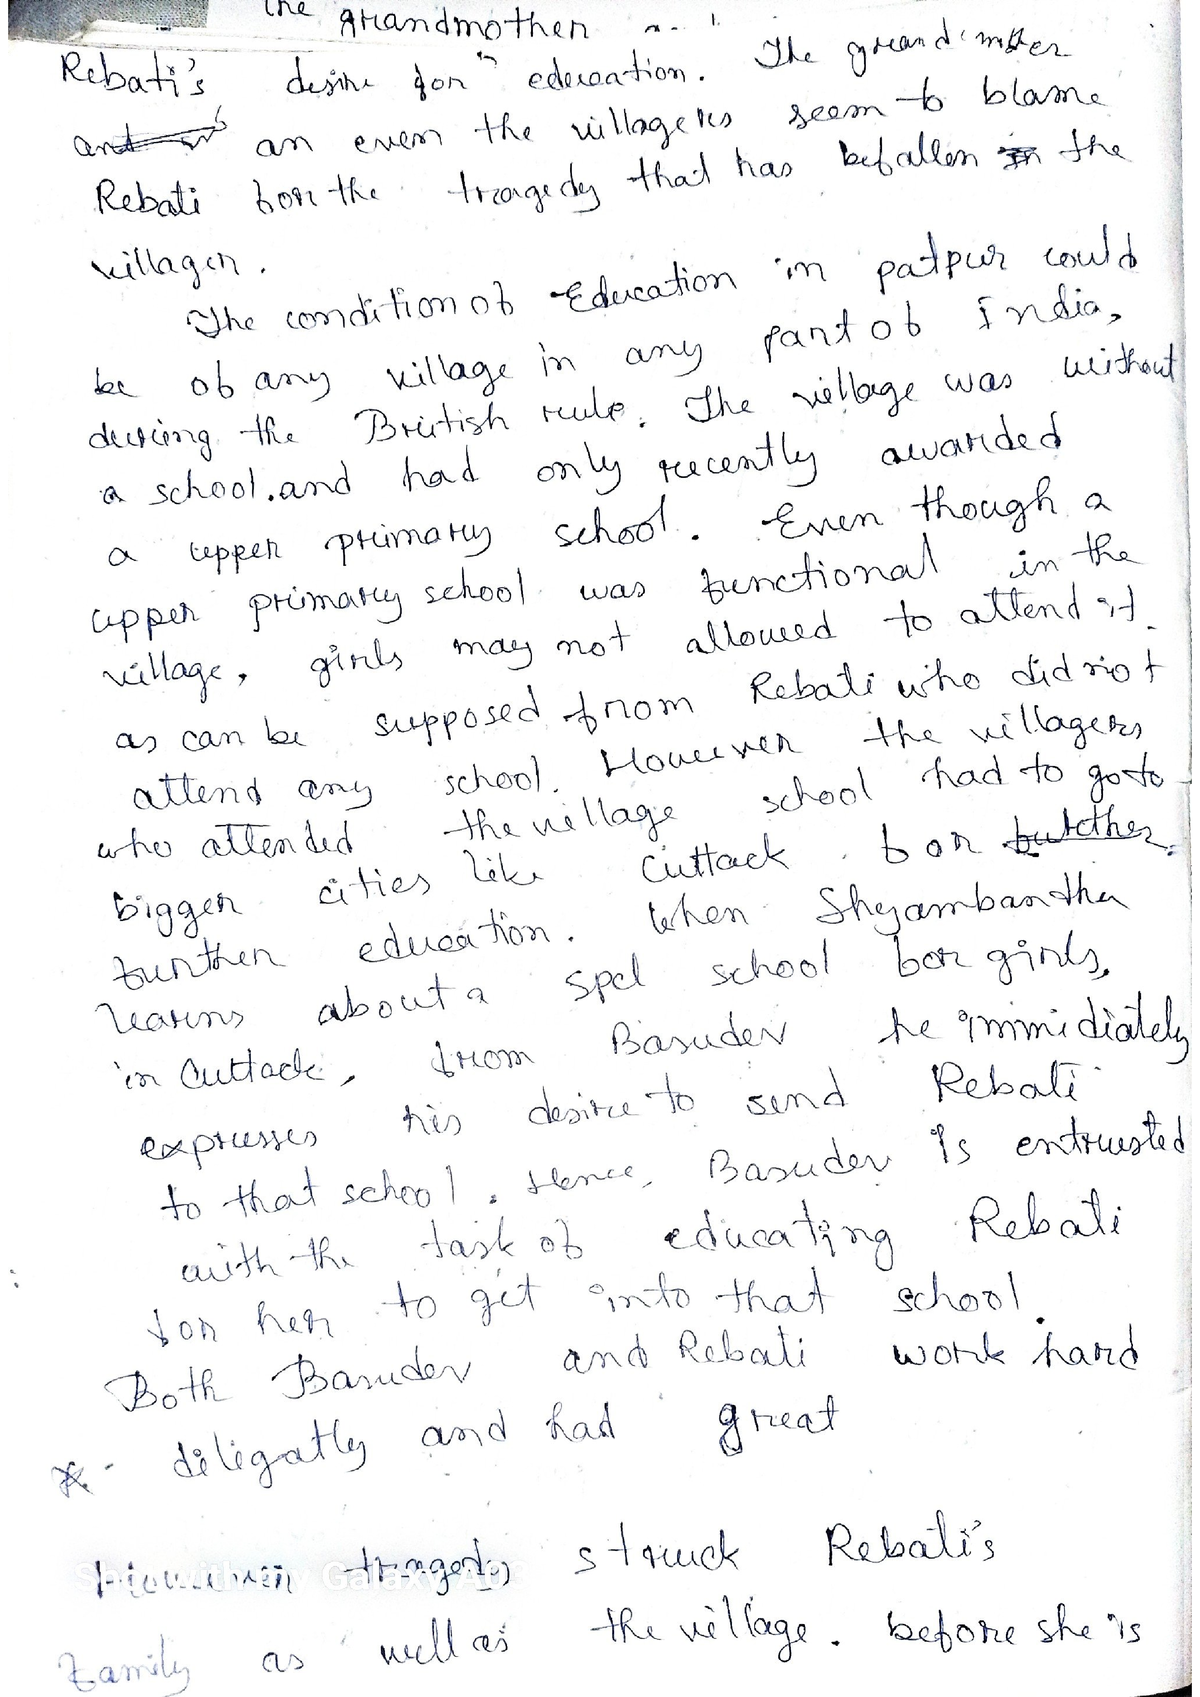 the grandmother
Rebati's desire for education. The grandmother
an even the villagers seem to blame
Rebati for the tragedy that has befallen the
villager.
The condition of Education in patpur could
be of any village in any part of India,
during the British rule. The village was without
a school. and had only recently awarded
a upper primary school. Even though a
upper primary school was functional in the
village, girls may not allowed to attend it.
as can be supposed from Rebati who did not
attend any school. However the villagers
who attended the village school had to go to
bigger cities like Cuttack for
further education. When Shyambandha
learns about a spcl school for girls,
in Cuttack, from Basudev he immidiately
expresses his desire to send Rebati
to that school. Hence, Basudev is entrusted
with the task of educating Rebati
for her to get into that school.
Both Basudev and Rebati work hard
diligatly and had great
However tragedy struck Rebati's
family as well as the village. before she is